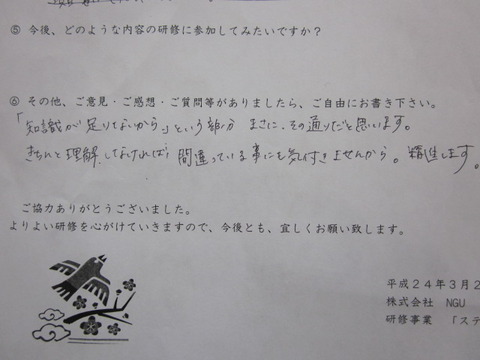 ⑤ 今後、どのような内容の研修に参加してみたいですか？
⑥ その他、ご意見・ご感想・ご質問等がありましたら、ご自由にお書き下さい。
「知識が足りないから」という部分 まさに、その通りだと思います。
きちんと理解しなければ 間違っている事にも気付きませんから。精進します。
ご協力ありがとうございました。
よりよい研修を心がけていきますので、今後とも、宜しくお願い致します。
平成２４年３月２
株式会社 NGU
研修事業 「ステ